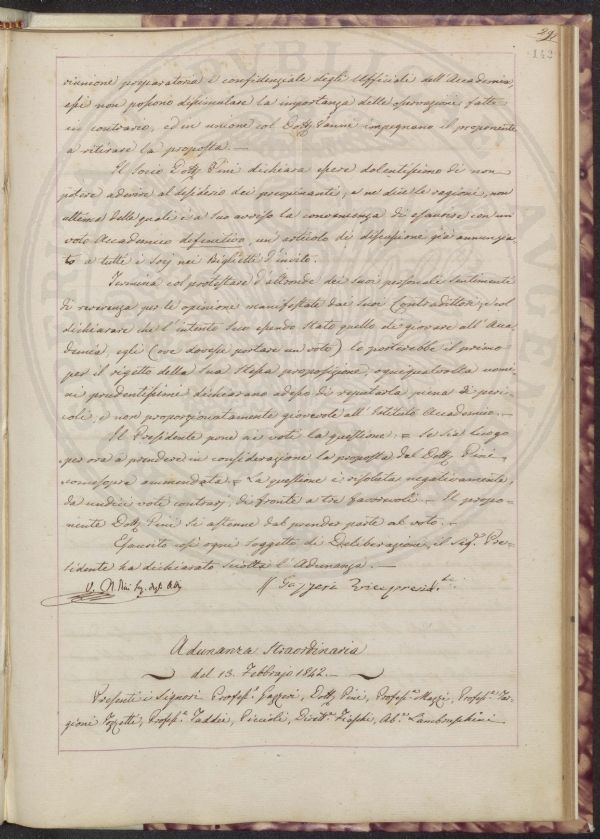 142
riunione preparatoria e confidenziale degli Uffiziali dell'Accademia,
essi non possono dissimulare la importanza delle osservazioni fatte
in contrario, ed in unione col Dott. Vanni impegnano il proponente
a ritirare la proposta. —
Il Socio Dott. Pini dichiara essere dolentissimo di non
potere aderire al desiderio dei preopinanti, e ne dice le ragioni, non
ultima delle quali è a suo avviso la convenienza di esaurire con un
voto Accademico definitivo, un'articolo di discussione già annunzia
to a tutti i Socj nei Biglietti d'invito.
Termina col protestare d'altronde dei suoi personali sentimenti
di reverenza per le opinione manifestate dai suoi Contradittori, e col
dichiarare che l'intento suo essendo stato quello di giovare all'Acca-
demia, egli (ove dovesse portare un voto) lo porterebbe il primo
per il rigetto della sua stessa proposizione, ogniqualvolta uomi
ni prudentissimi dichiarano adesso di reputarla piena di peri-
coli, e non proporzionatamente giovevole all'Istituto Accademico. —
Il Presidente pone ai voti la questione = Se sia luogo
per ora a prendere in considerazione la proposta del Dott. Pini
comesopra ammendata = La questione è risoluta negativamente,
da undici voti contrarj, di fronte a tre favorevoli. — Il propo-
nente Dott. Pini si astenne dal prender parte al voto. —
Esaurito così ogni soggetto di Deliberazione, il Sigr. Pre-
sidente ha dichiarato sciolta l'Adunanza. —
Gazzeri Vicepresid.te
Adunanza Straordinaria
del 13. Febbrajo 1842. —
Presenti i Signori Profess.r Gazzeri, Dott. Pini, Profess.r Mazzi, Profess.r Tar-
gioni Tozzetti, Profess.r Taddei, Piccioli, Dirett.r Ab. Lambruschini